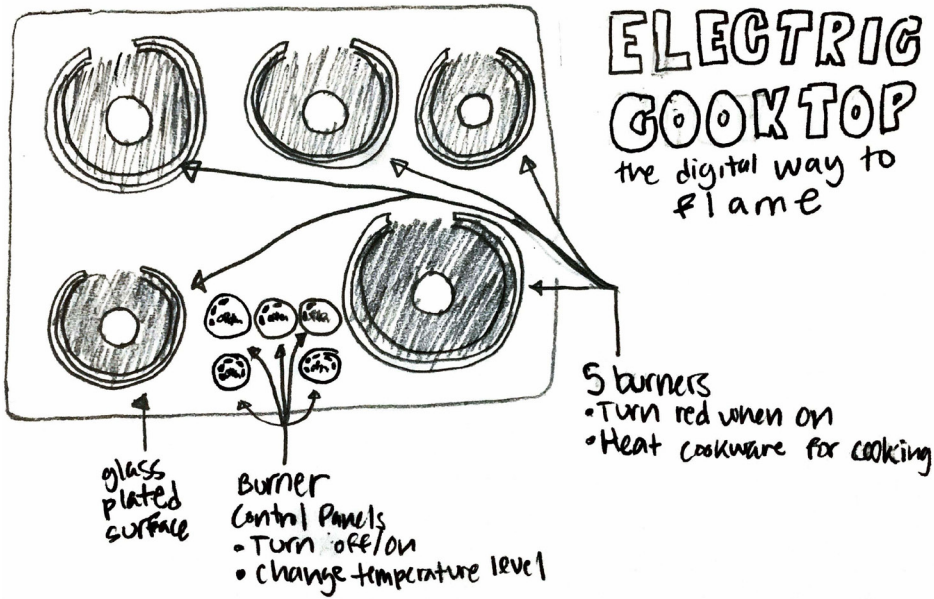 ELECTRIC
COOKTOP
the digital way to
flame
5 burners
• Turn red when on
• Heat cookware for cooking
glass
plated
surface
Burner
Control Panels
• Turn off/on
• Change temperature level